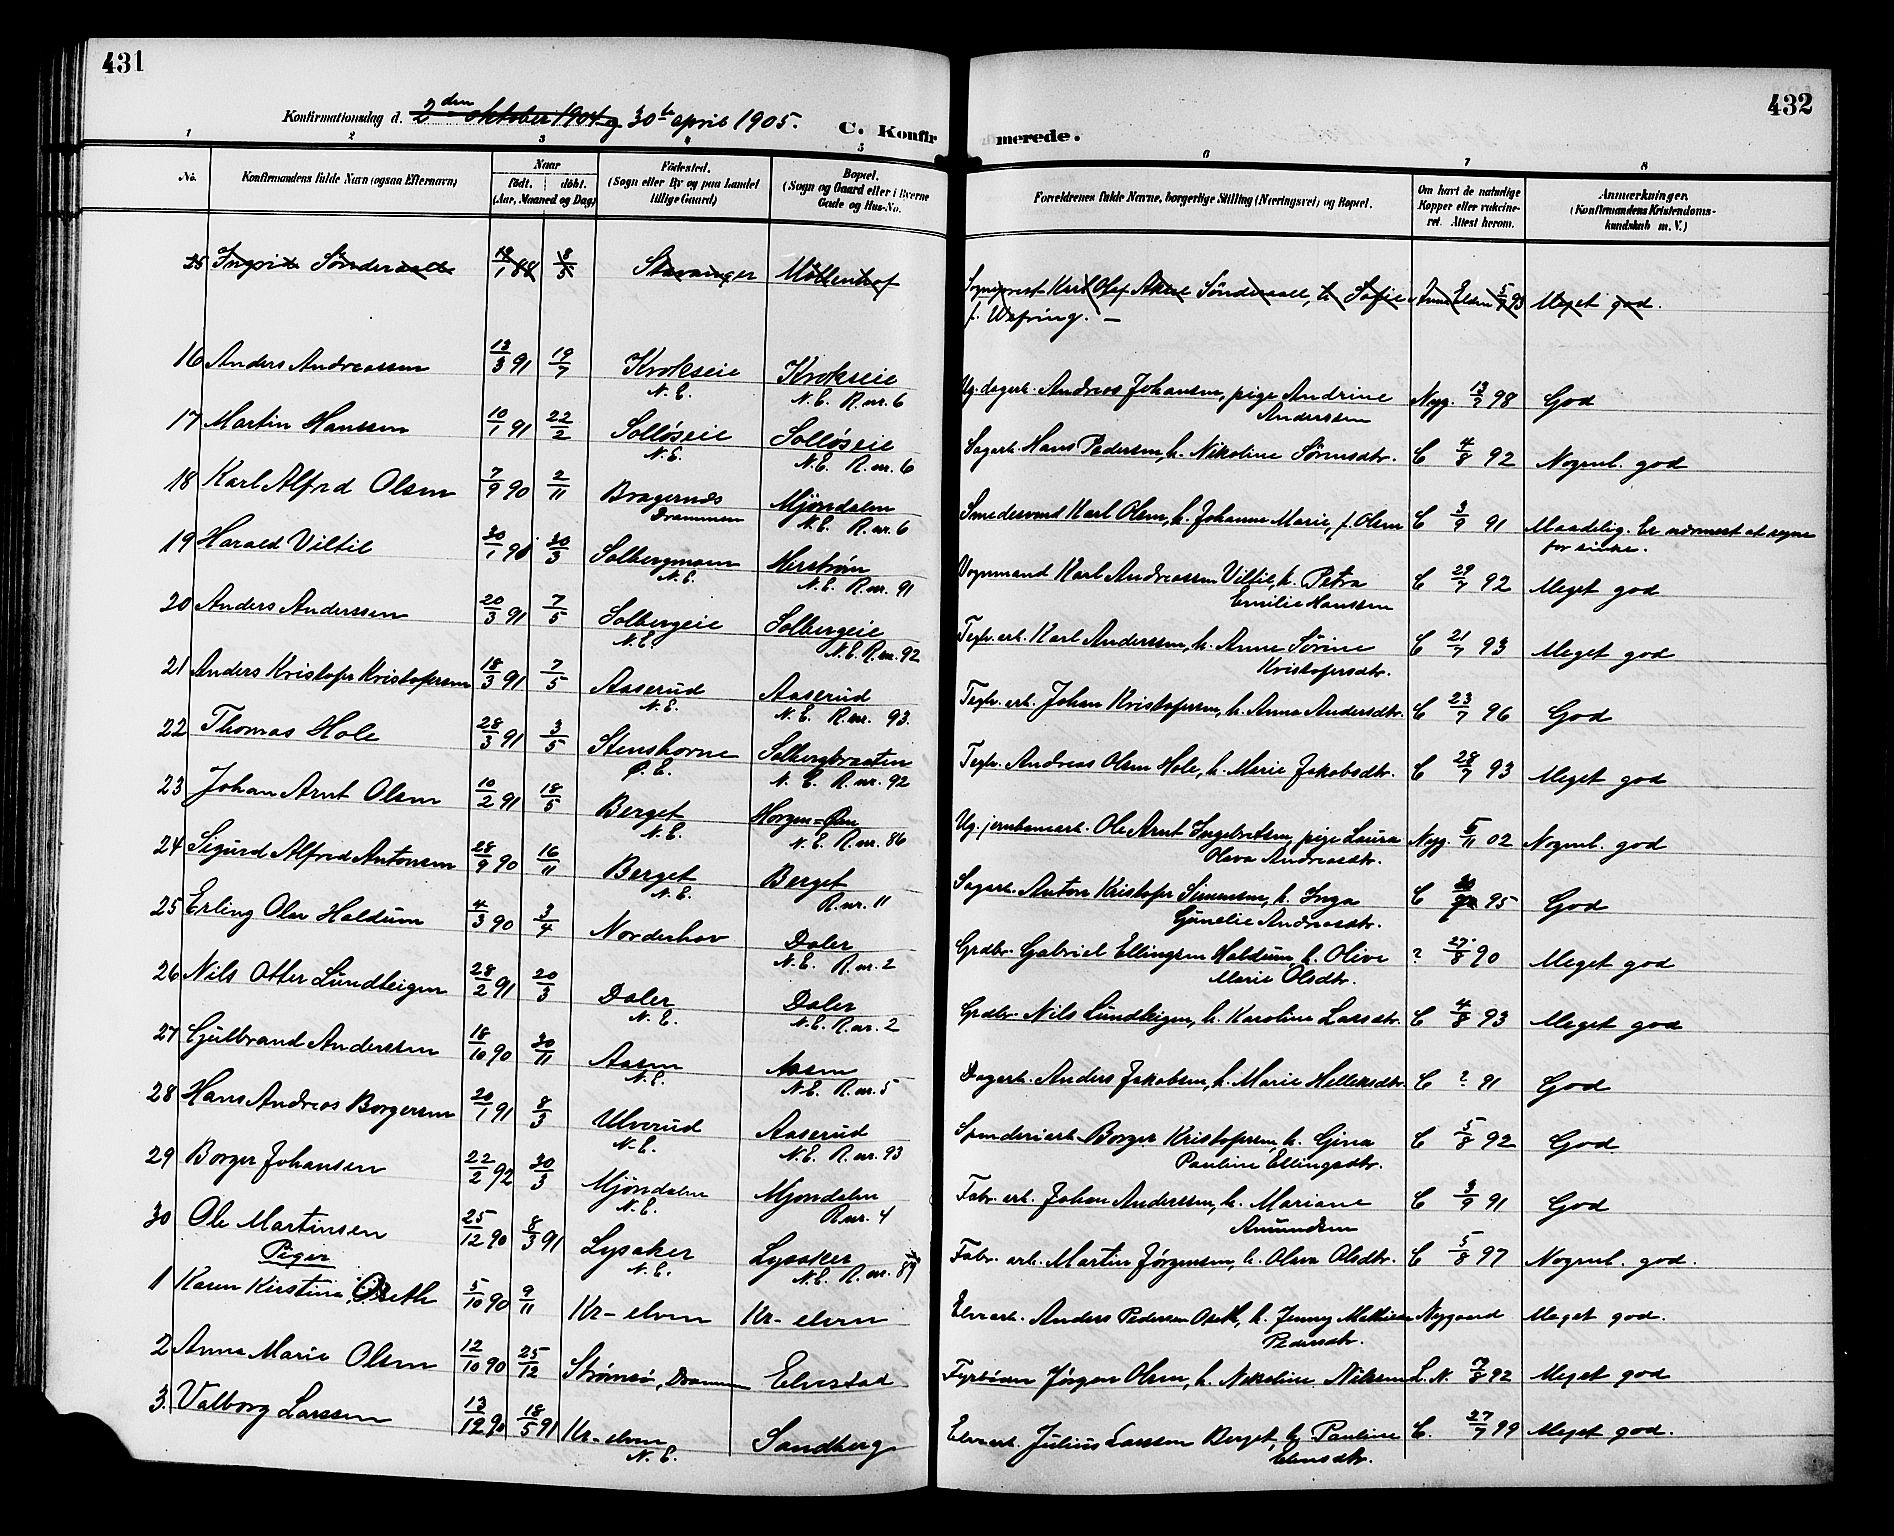 431
432
Konfirmationsdag d. 2den oktober 1904 og 30te april 1905.
C. Konfir merede.
1 2 3 4 5 6 7 8
No.
Konfirmandens fulde Navn (ogsaa Efternavn)
Naar
født. døbt.
(Aar, Maaned og Dag)
Fødested.
(Sogn eller By og paa Landet
tillige Gaard)
Bopæl.
(Sogn og Gaard eller i Byerne
Gade og Hus-No.
Forældrenes fulde Navne, borgerlige Stilling (Næringsvei) og Bopæl.
Om havt de naturlige
Kopper eller vakcine-
ret. Attest herom.
Anmærkninger.
(Konfirmandens Kristendoms-
kundskab m. V.)
25 Ingrid Sønderaall 18/1 88 8/5 Stavanger Möllenhof Sogneprest Karl Olaf Aksel Sønderaall, h. Sofie Elden 5/7 93 Meget god.
16 Anders Andreassen 13/3 91 19/7 Krokseie Krokseie Ug. dagarb. Andreas Johansen, pige Andrine Nyg. 13/7 98 God
N. E. N. E. R. nr. 6 Anderssen
17 Martin Hanssen 10/1 91 22/2 Solløseie Solløseie Sagarb. Hans Pedersen, h. Nikoline Sørensdtr. C 4/8 92 Nogenl. god
N. E. N. E. R. nr. 6
18 Karl Alfred Olsen 7/9 90 2/11 Bragernæs Mjøndalen Smedesvend Karl Olsen, h. Johanne Marie, f. Olsen C 3/9 91 Maadelig. Er nærmest at regne
Drammen N. E. R. nr. 6 for sinke.
19 Harald Viltil 30/1 90 30/3 Solbergmoen Herstrøm Vognmand Karl Andreassen Viltil, h. Petra C 29/7 92 Meget god
N. E. N. E. R. nr. 91 Emilie Hanssen
20 Anders Anderssen 20/3 91 7/5 Solbergeie Solbergeie Teglv. arb. Karl Anderssen, h. Anne Sørine C 21/7 93 Meget god
N. E. N. E. R. nr. 92 Kristofersdtr.
21 Anders Kristofer Kristofersen 18/3 91 7/5 Aaserud Aaserud Teglv. arb. Johan Kristofersen, h. Anna Andersdtr. C 23/7 96 God
N. E. N. E. R. nr. 93.
22 Thomas Hole 28/3 91 3/5 Stenshorne Solbergbraaten Teglv. Andreas Olsen Hole, h. Marie Jakobsdtr. C 28/7 93 Meget god
Ø. E. N. E. R. nr. 92
23 Johan Arnt Olsen 10/2 91 18/5 Berget Horgen=Øen Ug. jernbanearb. Ole Arnt Ingebretsen, pige Laura Nyg. 5/11 02 Nogenl. god
N. E. N. E. R. nr. 86 Olava Andreasdtr.
24 Sigurd Alfred Antonsen 28/9 90 16/11 Berget Berget Sagarb. Anton Kristofer Simensen, h. Inga C 95 God
N. E. R. nr. 11 Gunelie Andreasdtr.
25 Erling Olav Haldum 4/3 90 3/4 Norderhov Daler Grdbr. Gabriel Ellingsen Haldum, h. Olive ? 27/8 90 Meget god
N. E. R. nr. 2 Marie Olsdtr.
26 Nils Otter Lundteigen 28/2 91 20/3 Daler Daler Grdbr. Nils Lundteigen, h. Karoline Larsdtr. C 4/8 93 Meget god
N. E. N. E. R. nr. 2
27 Gulbrand Anderssen 18/10 90 30/11 Aasen Aasen Dagarb. Anders Jakobsen, h. Marie Helleksdtr. C ? 91 God
N. E. N. E. R. nr. 5
28 Hans Andreas Borgersen 20/1 91 8/3 Ulverud Aaserud Spinderiarb. Borger Kristofersen, h. Gina C 5/8 92 God
N. E. N. E. R. nr. 93 Pauline Ellingsdtr.
29 Borger Johansen 22/2 92 30/3 Mjøndalen Mjøndalen Fabr. arb. Johan Anderssen, h. Mariane C 3/9 91 God
N. E. R. nr. 4 Amundsen
30 Ole Martinsen 25/12 90 8/3 91 Lysaker Lysaker Fabr. arb. Martin Jørgensen, h. Olava Olsdtr. C 5/8 97 Nogenl. god.
N. E. N. E. R. nr. 87
Piger
1 Karen Kirstine Oseth 5/10 90 9/11 Kr- elven Kr- elven Elvearb. Anders Pedersen Oseth, h. Jenny Mathiea Nygaard Meget god.
Pedersdtr.
2 Anna Marie Olsen 12/10 90 25/12 Strømsø, Drammen Elvestad Fyrbøder Jørgen Olsen, h. Nikoline Nilssen L. N. 7/8 92 Meget god
3. Valborg Larssen 13/12 90 18/5 91 Kr- elven Sandberg Elvearb. Julius Larssen Berget, h. Pauline C. 27/7 99 Meget god.
N. E. Elensdtr.